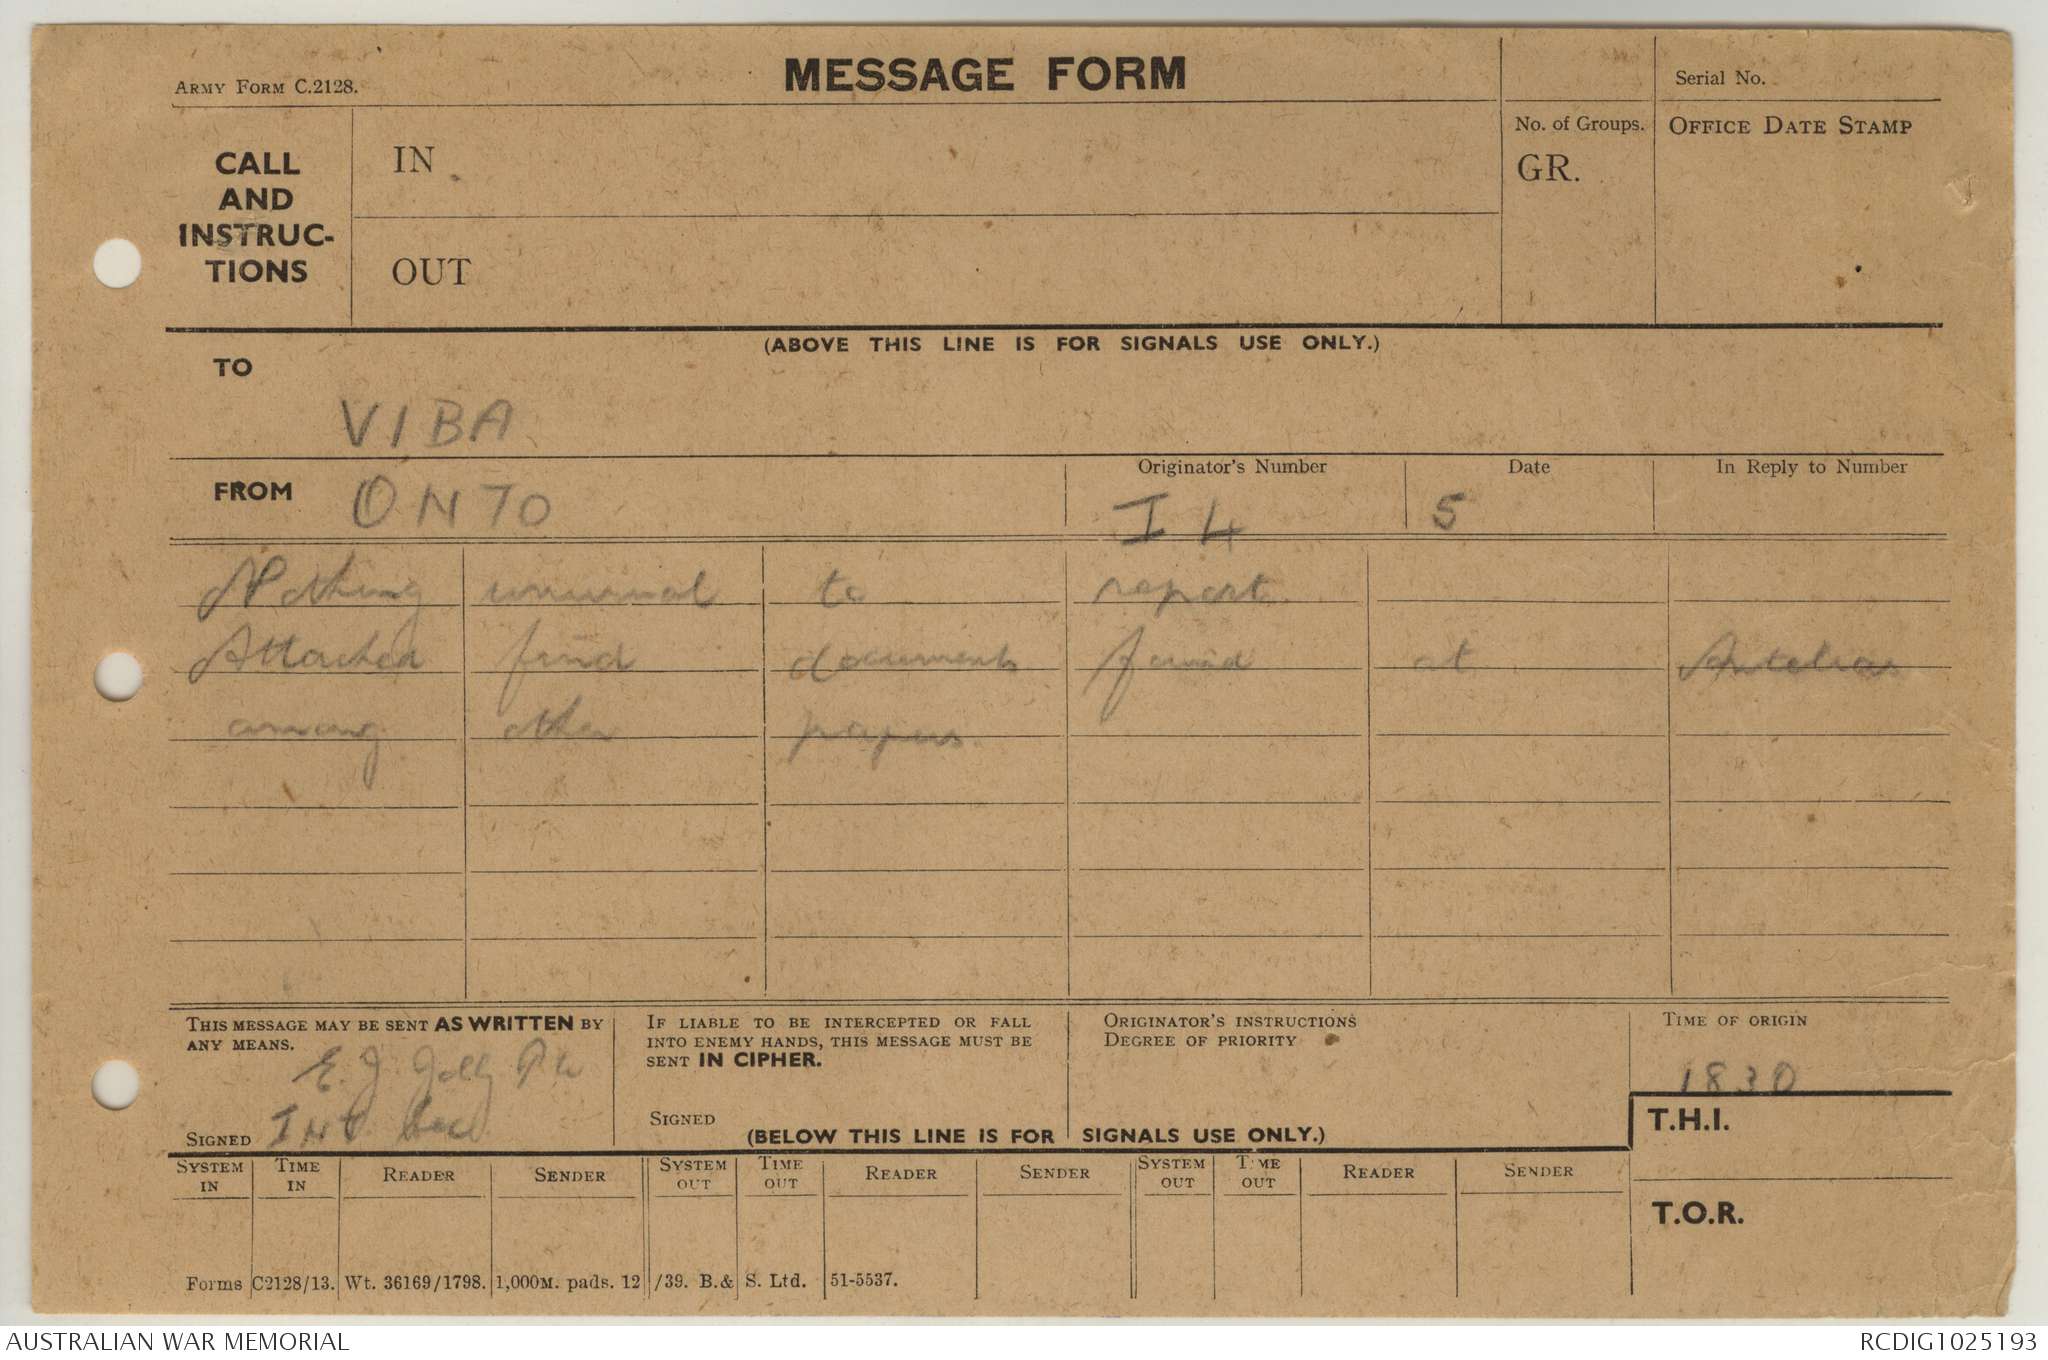 ARMY FORM C.2128.
MESSAGE FORM
Serial No.
CALL AND INSTRUC-TIONS
IN
OUT
No. of Groups.
GR.
OFFICE DATE STAMP
(ABOVE THIS LINE IS FOR SIGNALS USE ONLY.)
TO
VIBA
FROM
ONTO
Originator's Number
I 4
Date
5
In Reply to Number
Nothing unusual to report.
Attached find documents found at Antelias
among other papers.
THIS MESSAGE MAY BE SENT AS WRITTEN BY
ANY MEANS.
E. J. Jolly
SIGNED Int Sec
IF LIABLE TO BE INTERCEPTED OR FALL
INTO ENEMY HANDS, THIS MESSAGE MUST BE
SENT IN CIPHER.
SIGNED
ORIGINATOR'S INSTRUCTIONS
DEGREE OF PRIORITY
TIME OF ORIGIN
1830
(BELOW THIS LINE IS FOR SIGNALS USE ONLY.)
T.H.I.
SYSTEM IN TIME IN READER SENDER SYSTEM OUT TIME OUT READER SENDER SYSTEM OUT TIME OUT READER SENDER
T.O.R.
Forms C2128/13. Wt. 36169/1798. 1,000M. pads. 12/39. B.& S. Ltd. 51-5537.
AUSTRALIAN WAR MEMORIAL
RCDIG1025193